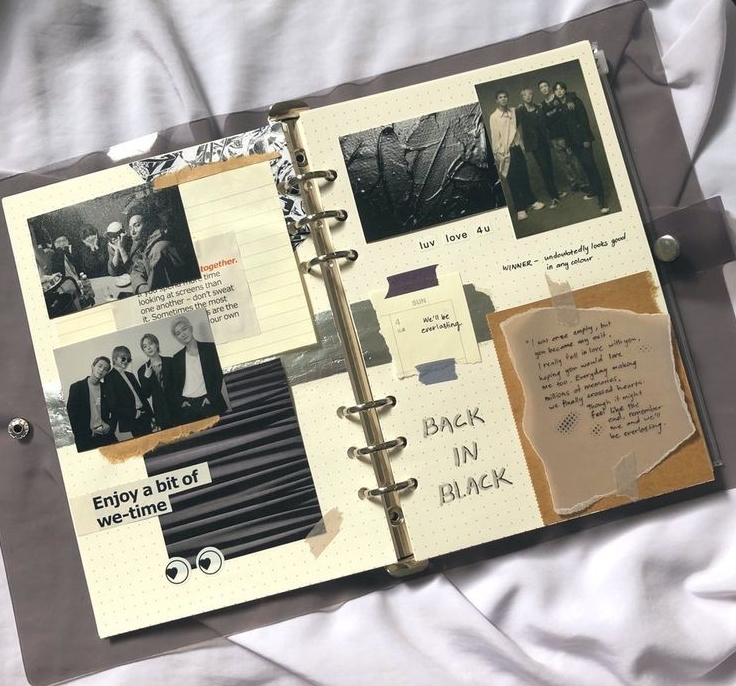 together.
looking at screens than
one another – don't sweat
it. Sometimes the most
are the
our own
Enjoy a bit of
we-time
luv love 4u
WINNER - undoubtedly looks good
in any colour
SUN
4
We'll be
everlasting.
BACK
IN
BLACK
"I was once empty, but
you became my exit.
I really fell in love with you,
hoping you would love
me too. Everyday making
millions of memories,
we finally crossed hearts.
Though it might
feel like the
end, remember
me and we'll
be everlasting.